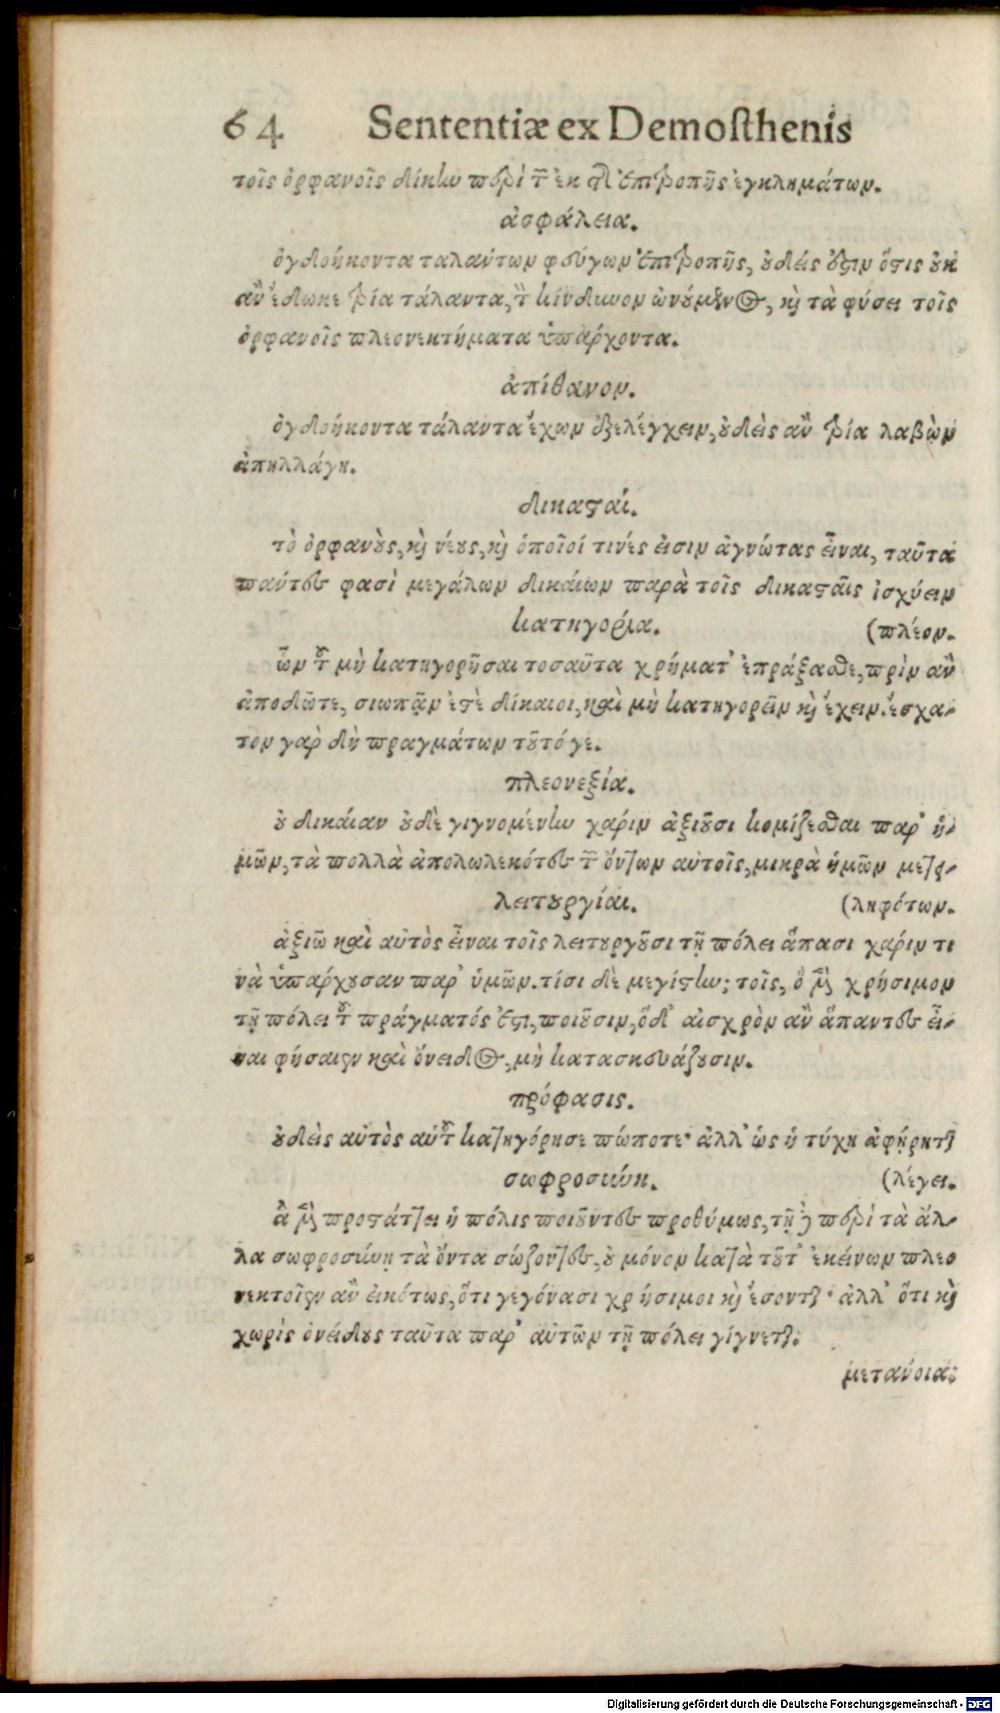 64 Sententiæ ex Demosthenis
τοῖς ὀρφανοῖς δίκην περὶ τῶν ἐκ τῆς ἐπιτροπῆς ἐγκλημάτων.
ἀσφάλεια.
ὀγδοήκοντα ταλάντων φεύγων ἐπιτροπῆς, οὐδείς ἐστιν ὅστις οὐκ
ἂν ἔδωκε τρία τάλαντα, τὸν κίνδυνον ὠνούμενος, καὶ τὰ φύσει τοῖς
ὀρφανοῖς πλεονεκτήματα ὑπάρχοντα.
ἀπίθανον.
ὀγδοήκοντα τάλαντα ἔχων ἐξελέγχειν, οὐδεὶς ἂν τρία λαβὼν
ἀπηλλάγη.
δικασταί.
τὸ ὀρφανοὺς, καὶ νέους, καὶ ὁποῖοί τινές εἰσιν ἀγνώτας εἶναι, ταῦτα
πάντες φασὶ μεγάλων δικαίων παρὰ τοῖς δικασταῖς ἰσχύειν
κατηγορία. (πλέον.
ὧν τοῦ μὴ κατηγορῆσαι τοσαῦτα χρήματ' ἐπράξασθε, πρὶν ἂν
ἀποδῶτε, σιωπᾷν ἐστὲ δίκαιοι, καὶ μὴ κατηγορεῖν καὶ ἔχειν. ἔσχα-
τον γὰρ δὴ πραγμάτων τοῦτό γε.
πλεονεξία.
οὐ δικαίαν οὐδὲ γιγνομένην χάριν ἀξιοῦσι κομίζεσθαι παρ' ἡ-
μῶν, τὰ πολλὰ ἀπολωλεκότες τῶν ὄντων αὐτοῖς, μικρὰ ἡμῶν μετει-
λειτουργίαι. (ληφότων.
ἀξιῶ καὶ αὐτὸς εἶναι τοῖς λειτουργοῦσι τῇ πόλει ἅπασι χάριν τι
νὰ ὑπάρχουσαν παρ' ὑμῶν. τίσι δὲ μεγίστην; τοῖς, ὃ μὲν χρήσιμον
τῇ πόλει τοῦ πράγματός ἐστι, ποιοῦσιν, ὃ δ' αἰσχρὸν ἂν ἅπαντες εἶ-
ναι φήσαιεν καὶ ὄνειδος, μὴ κατασκευάζουσιν.
πρόφασις.
οὐδεὶς αὐτὸς αὑτοῦ κατηγόρησε πώποτε· ἀλλ' ὡς ἡ τύχη ἀφῄρηται
σωφροσύνη. (λέγει.
ἃ μὲν προστάττει ἡ πόλις ποιοῦντες προθύμως, τῇ δὲ περὶ τὰ ἄλ-
λα σωφροσύνῃ τὰ ὄντα σώζοντες, οὐ μόνον κατὰ τοῦτ' ἐκείνων πλεο
νεκτοῖεν ἂν εἰκότως, ὅτι γεγόνασι χρήσιμοι καὶ ἔσονται· ἀλλ' ὅτι καὶ
χωρὶς ὀνείδους ταῦτα παρ' αὐτῶν τῇ πόλει γίγνεται.
μετάνοια:
Digitalisierung gefördert durch die Deutsche Forschungsgemeinschaft - DFG